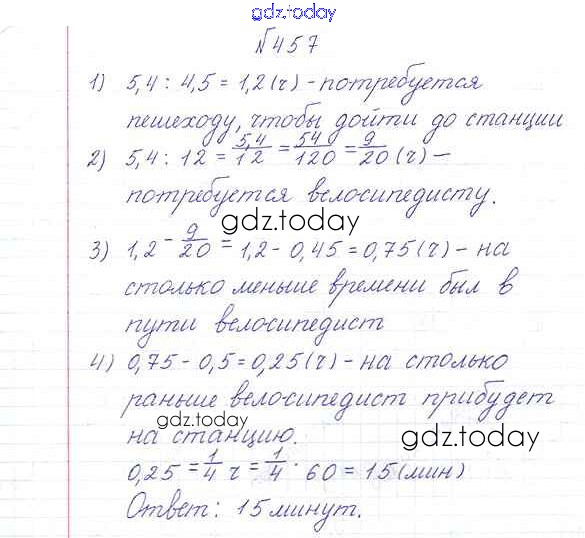 gdz.today
№457
1) 5,4 : 4,5 = 1,2 (ч) - потребуется
пешеходу, чтобы дойти до станции
2) 5,4 : 12 = 5,4/12 = 54/120 = 9/20 (ч) –
потребуется велосипедисту.
gdz.today
3) 1,2 - 9/20 = 1,2 - 0,45 = 0,75 (ч) - на
столько меньше времени был в
пути велосипедист
4) 0,75 - 0,5 = 0,25 (ч) - на столько
раньше велосипедист прибудет
gdz.today
на станцию.
gdz.today
0,25 = 1/4 ч = 1/4 · 60 = 15 (мин)
Ответ: 15 минут.